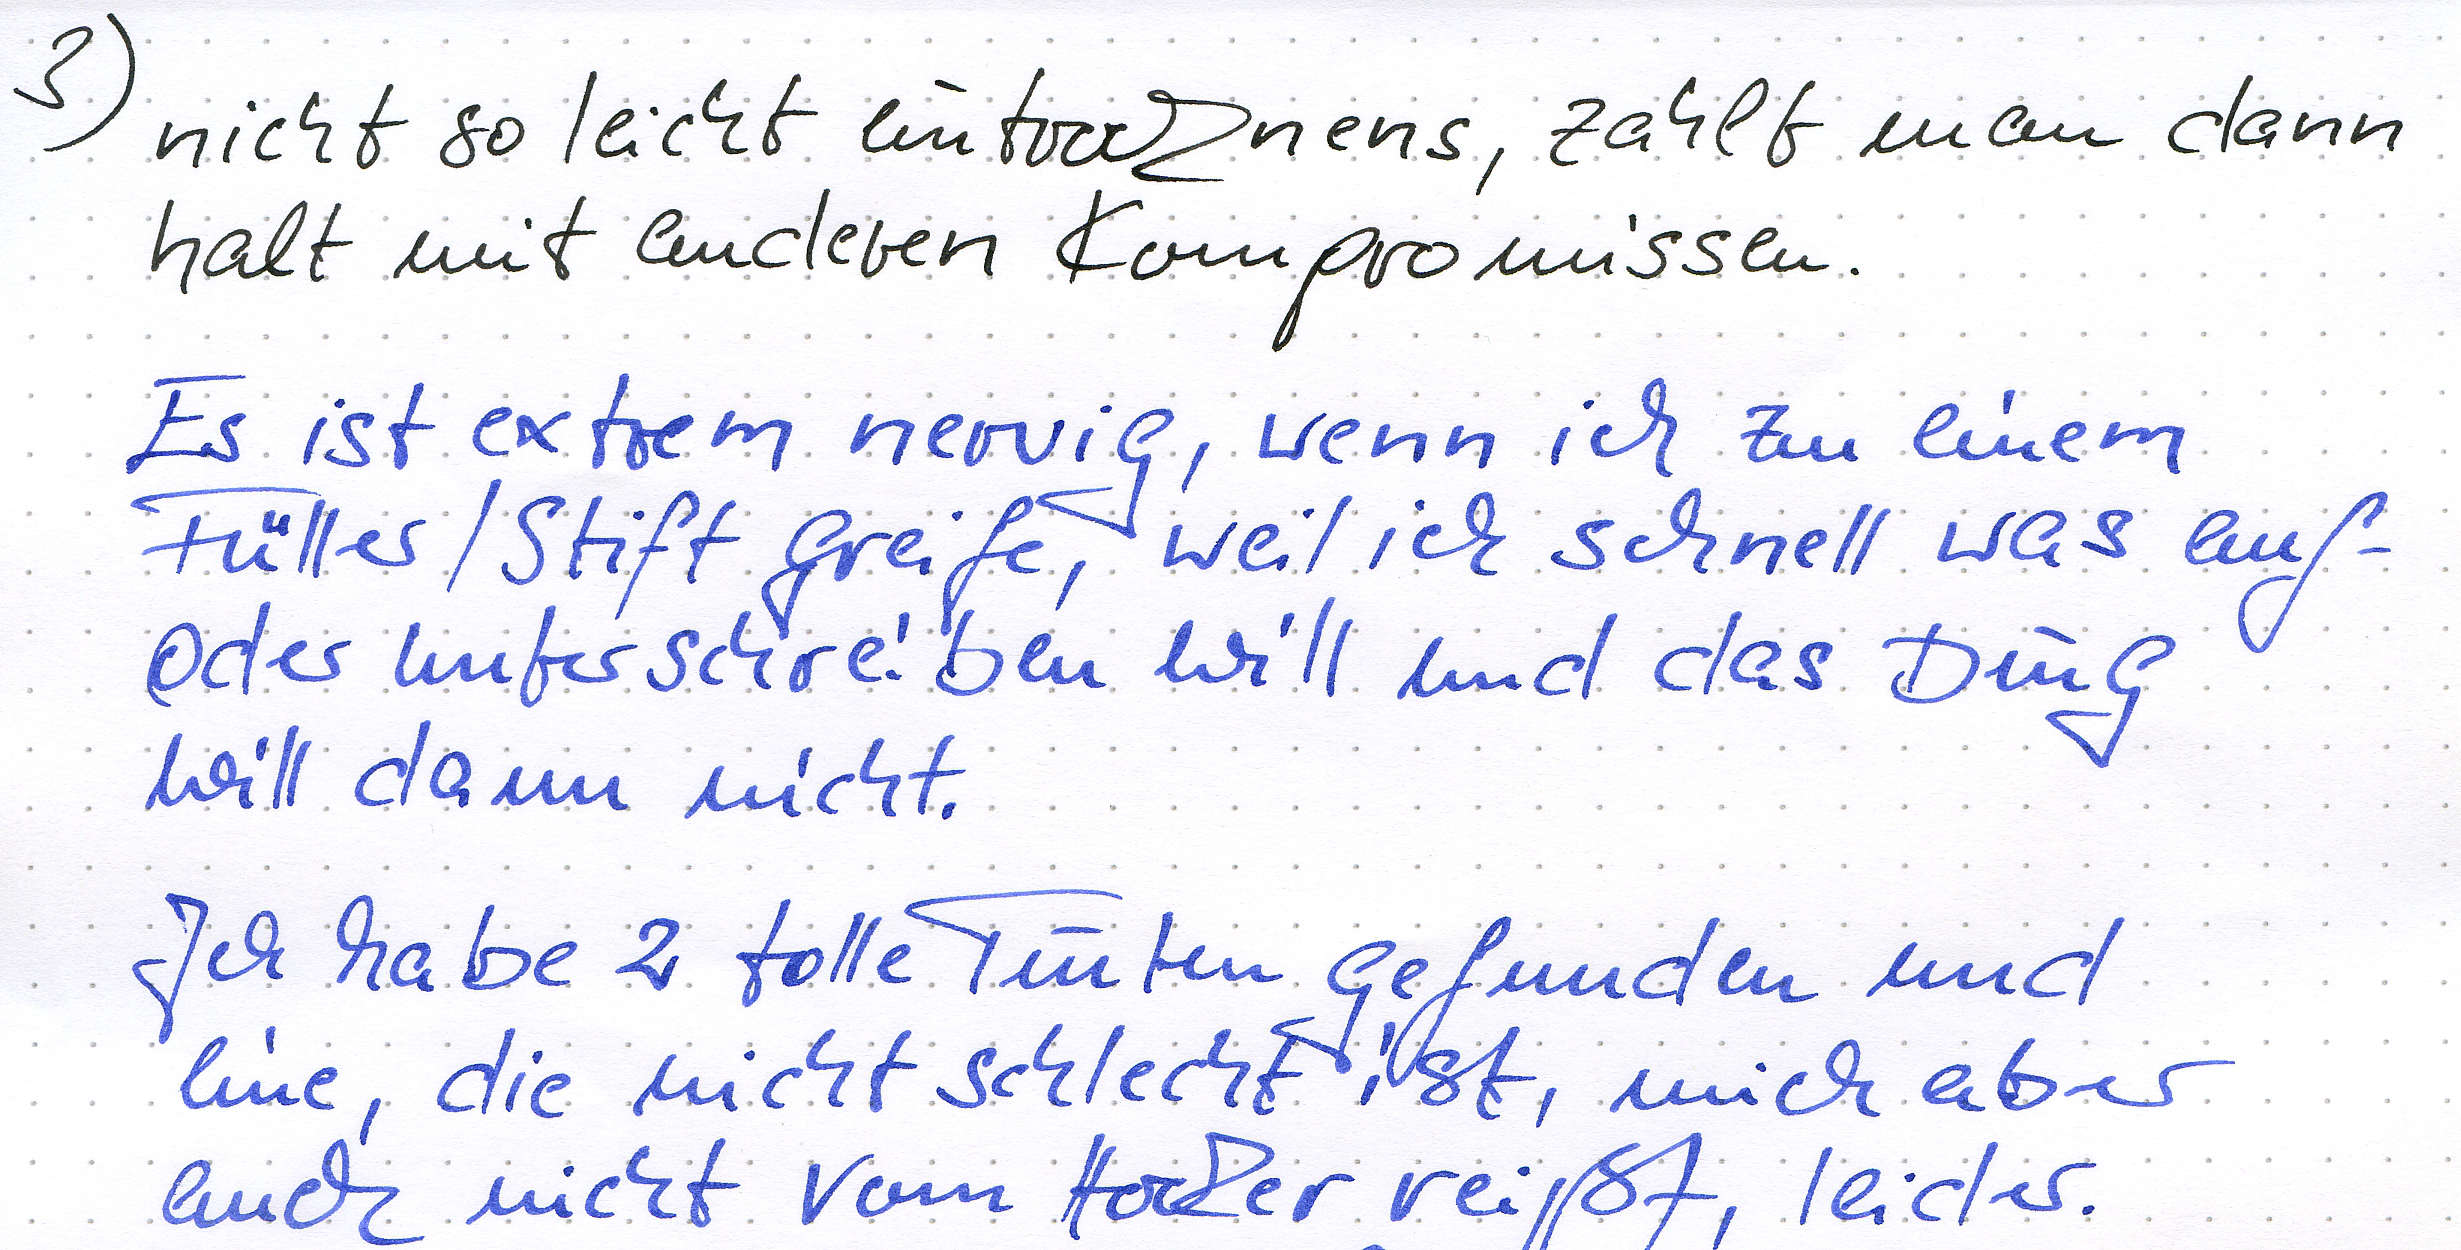 3)
nicht so leicht eintrocknens, zahlt man dann
halt mit anderen Kompromissen.
Es ist extrem nervig, wenn ich zu einem
Füller/Stift greife, weil ich schnell was auf-
oder unterschreiben will und das Ding
will dann nicht.
Ich habe 2 tolle Tinten gefunden und
eine, die nicht schlecht ist, mich aber
auch nicht vom Hocker reißt, leider.